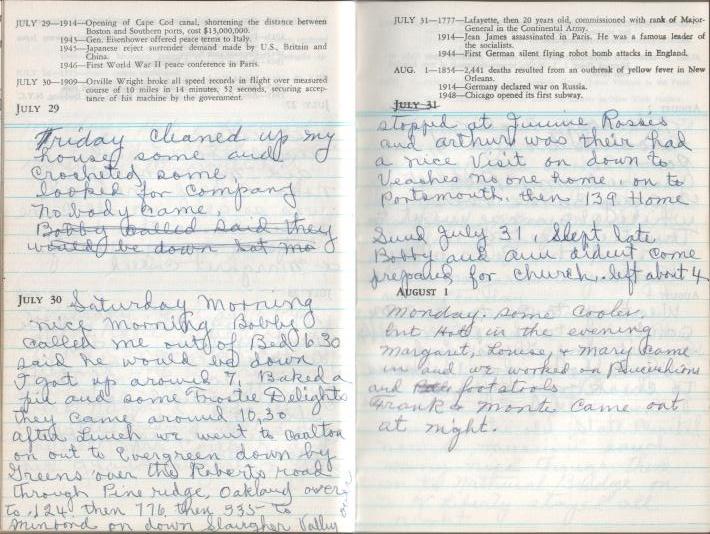 JULY 29—1914—Opening of Cape Cod canal, shortening the distance between
Boston and Southern ports, cost $13,000,000.
1943—Gen. Eisenhower offered peace terms to Italy.
1945—Japanese reject surrender demand made by U.S., Britain and
China.
1946—First World War II peace conference in Paris.
JULY 30—1909—Orville Wright broke all speed records in flight over measured
course of 10 miles in 14 minutes, 52 seconds, securing accep-
tance of his machine by the government.
JULY 29
Friday cleaned up my
house some and
Crocheted some,
looked for company
nobody came,
Bobby called said they
would be down sat mo
JULY 30 Saturday Morning
nice morning Bobby
called me out of Bed 6 30
said he would be down
I got up around 7, Baked a
pie and some Frostie Delights
they came around 10,30
after Lunch we went to
on out to Evergreen down by
Greens over the Roberts road
through Pine ridge, Oakland over
to, 124, then 776, then 535 to
on down Slaugher Valley
JULY 31—1777—Lafayette, then 20 years old, commissioned with rank of Major-
General in the Continental Army.
1914—Jean James assassinated in Paris. He was a famous leader of
the socialists.
1944—First German silent flying robot bomb attacks in England.
AUG. 1—1854—2,441 deaths resulted from an outbreak of yellow fever in New
Orleans.
1914—Germany declared war on Russia.
1948—Chicago opened its first subway.
JULY 31
stopped at Jimmie Rossis
and arthur was their had
a nice Visit on down to
Veaches no one home, on to
Portsmouth, then 139 Home
Sund July 31, Slept late
Bobby and ann didn't come
prepared for church. left about 4
AUGUST 1
Monday. some Cooler,
but Hot in the evening
Margaret, Louise, & Mary came
in and we worked on
and footstools
Frank & Monte came out
at night.